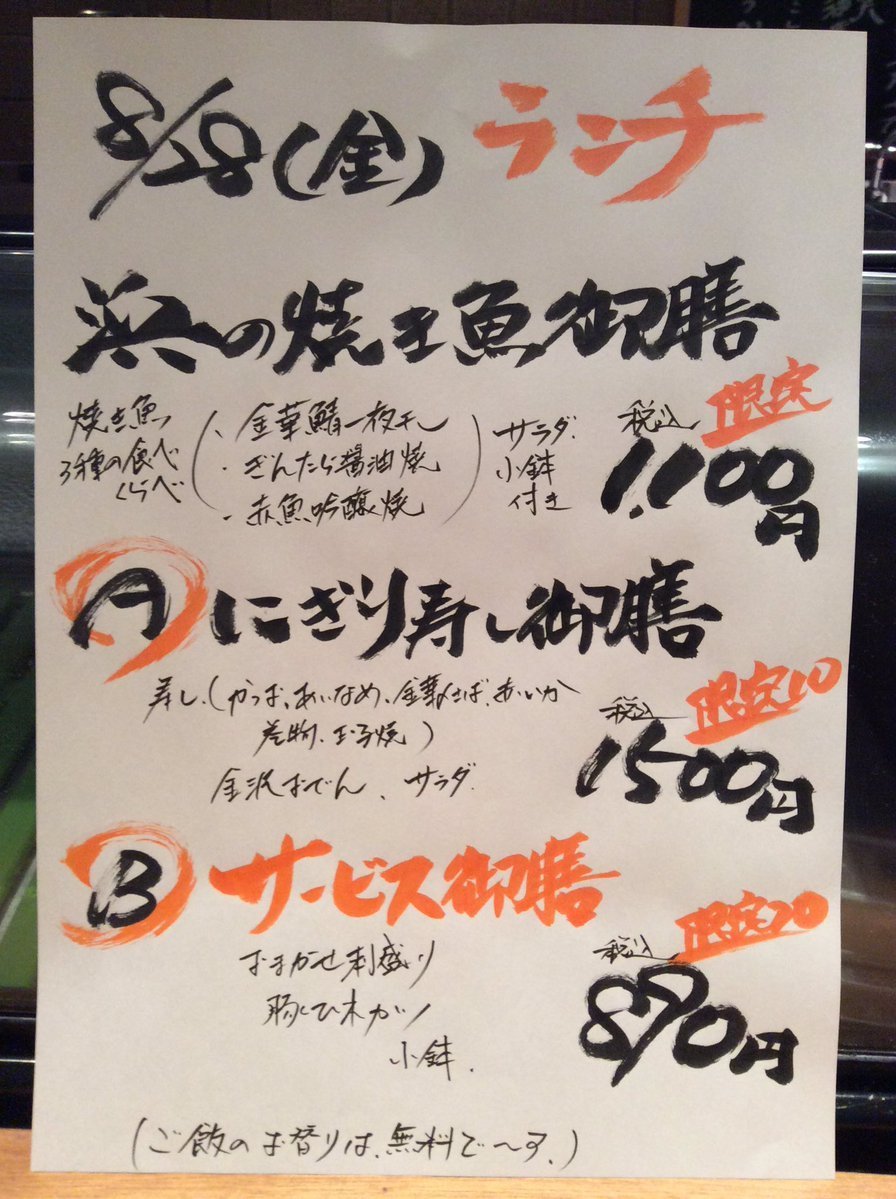 8/28(金) ランチ
浜の焼き魚御膳
焼き魚
3種の食べ
くらべ
・金華鯖一夜干し
・ぎんたら醤油焼
・赤魚吟醸焼
サラダ
小鉢
付き
限定
税込
1,100円
A にぎり寿し御膳
寿し(かつお、あいなめ、金華さば、あいか
巻物、玉子焼)
金沢おでん、サラダ
限定10
税込
1500円
B サービス御膳
おまかせ刺盛り
豚ひれカツ
小鉢
限定20
税込
890円
(ご飯のお替りは、無料で〜す。)